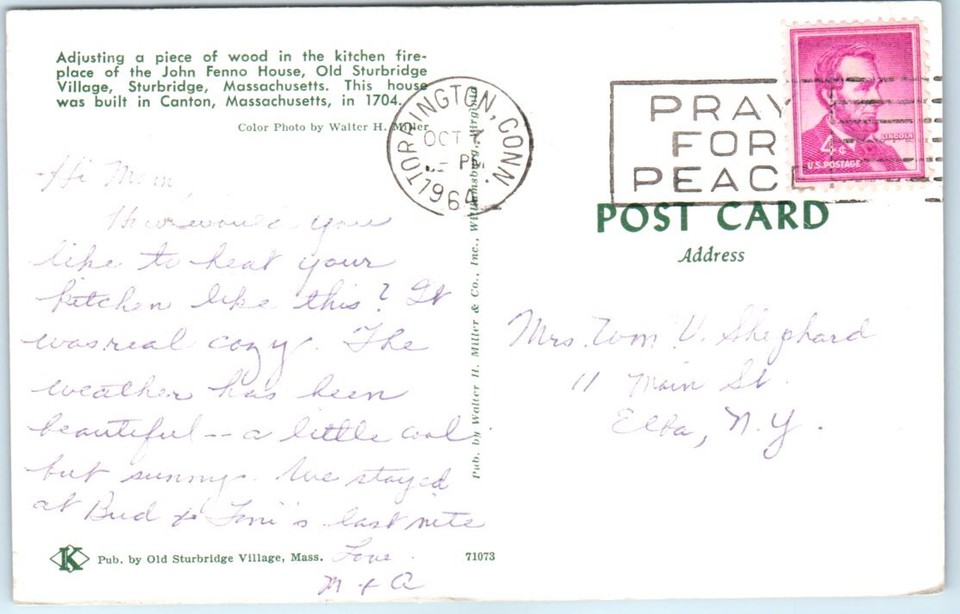 Adjusting a piece of wood in the kitchen fire-
place of the John Fenno House, Old Sturbridge
Village, Sturbridge, Massachusetts. This house
was built in Canton, Massachusetts, in 1704.
Color Photo by Walter H. Miller
Hi Mom
How would you
like to heat your
kitchen like this? It
was real cozy. The
weather has been
beautiful -- a little cool
but sunny. We stayed
at Bud & Toni's last nite
Love
M + A
K Pub. by Old Sturbridge Village, Mass.
71073
Pub. by Walter H. Miller & Co., Inc., Williamsburg, Virginia
TORRINGTON, CONN.
OCT 7
PM
1964
PRAY
FOR
PEACE
LINCOLN
4¢
U.S. POSTAGE
POST CARD
Address
Mrs. Tom V. Shephard
11 Main St.
Elba, N.Y.